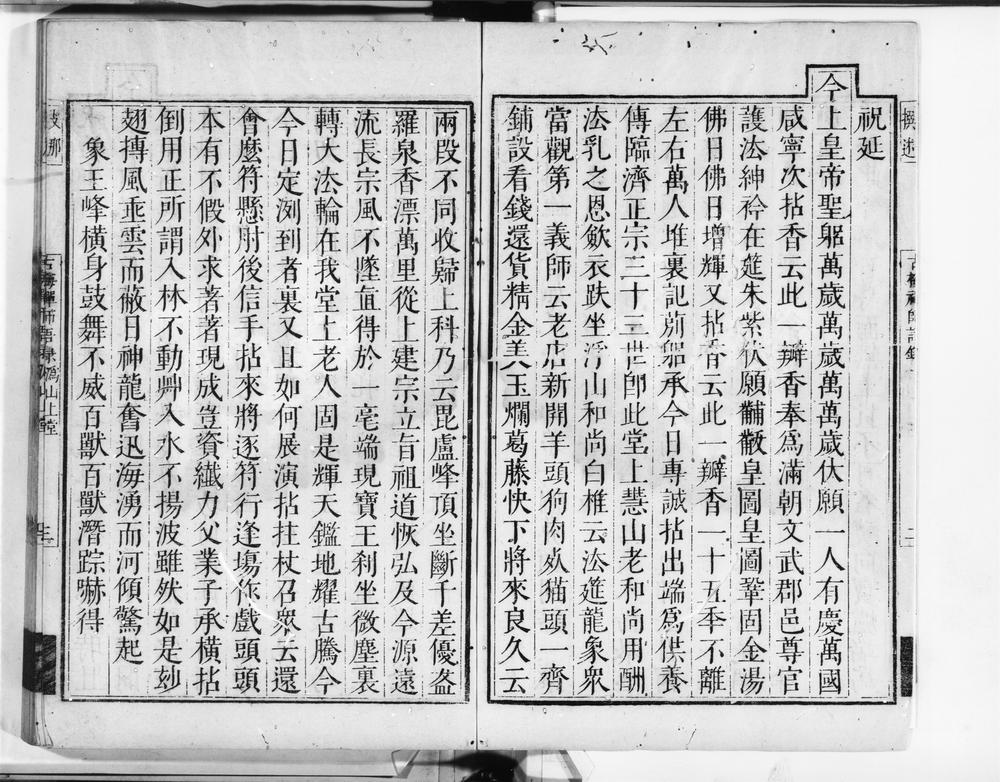 祝延
今上皇帝聖躬萬歲萬歲萬萬歲伏願一人有慶萬國
咸寧次拈香云此一瓣香奉爲滿朝文武郡邑尊官
護法紳衿在筵朱紫伏願黼黻皇圖皇圖鞏固金湯
佛日佛日增輝又拈香云此一瓣香一十五年不離
左右萬人堆裏記莂親承今日專誠拈出端爲供養
傳臨濟正宗三十三世卽此堂上慧山老和尚用酬
法乳之恩斂衣趺坐浮山和尚白椎云法筵龍象衆
當觀第一義師云老店新開羊頭狗肉奐猫頭一齊
鋪設看錢還貨精金美玉爛葛藤快下將來良久云
兩段不同收歸上科乃云毘盧峰頂坐斷千差優盋
羅泉香漂萬里從上建宗立旨祖道恢弘及今源遠
流長宗風不墜直得於一毫端現寶王刹坐微塵裏
轉大法輪在我堂上老人固是輝天鑑地耀古騰今
今日定測到者裏又且如何展演拈拄杖召衆云還
會麼符懸肘後信手拈來將逐符行逢塲作戲頭頭
本有不假外求著著現成豈資纖力父業子承橫拈
倒用正所謂入林不動艸入水不揚波雖然如是玅
翅搏風乖雲而蔽日神龍奮迅海湧而河傾驚起
象王峰橫身鼓舞不威百獸百獸潛踪嚇得